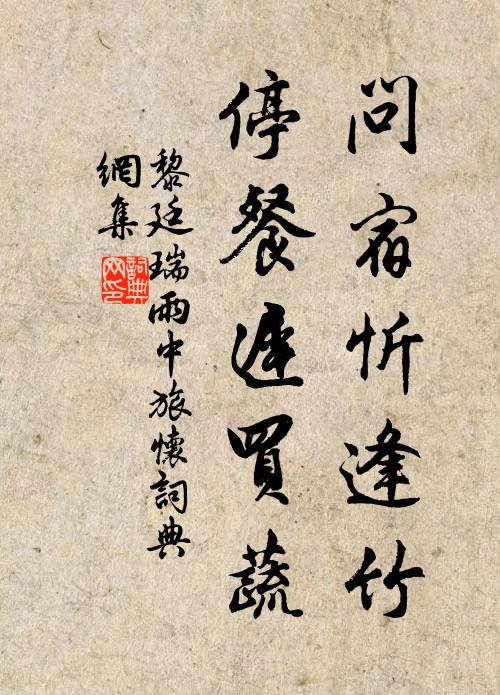 問宿忻逢竹
停餐遅買蔬
黎廷瑞雨中旅懷詞典
網集
詞典
网印